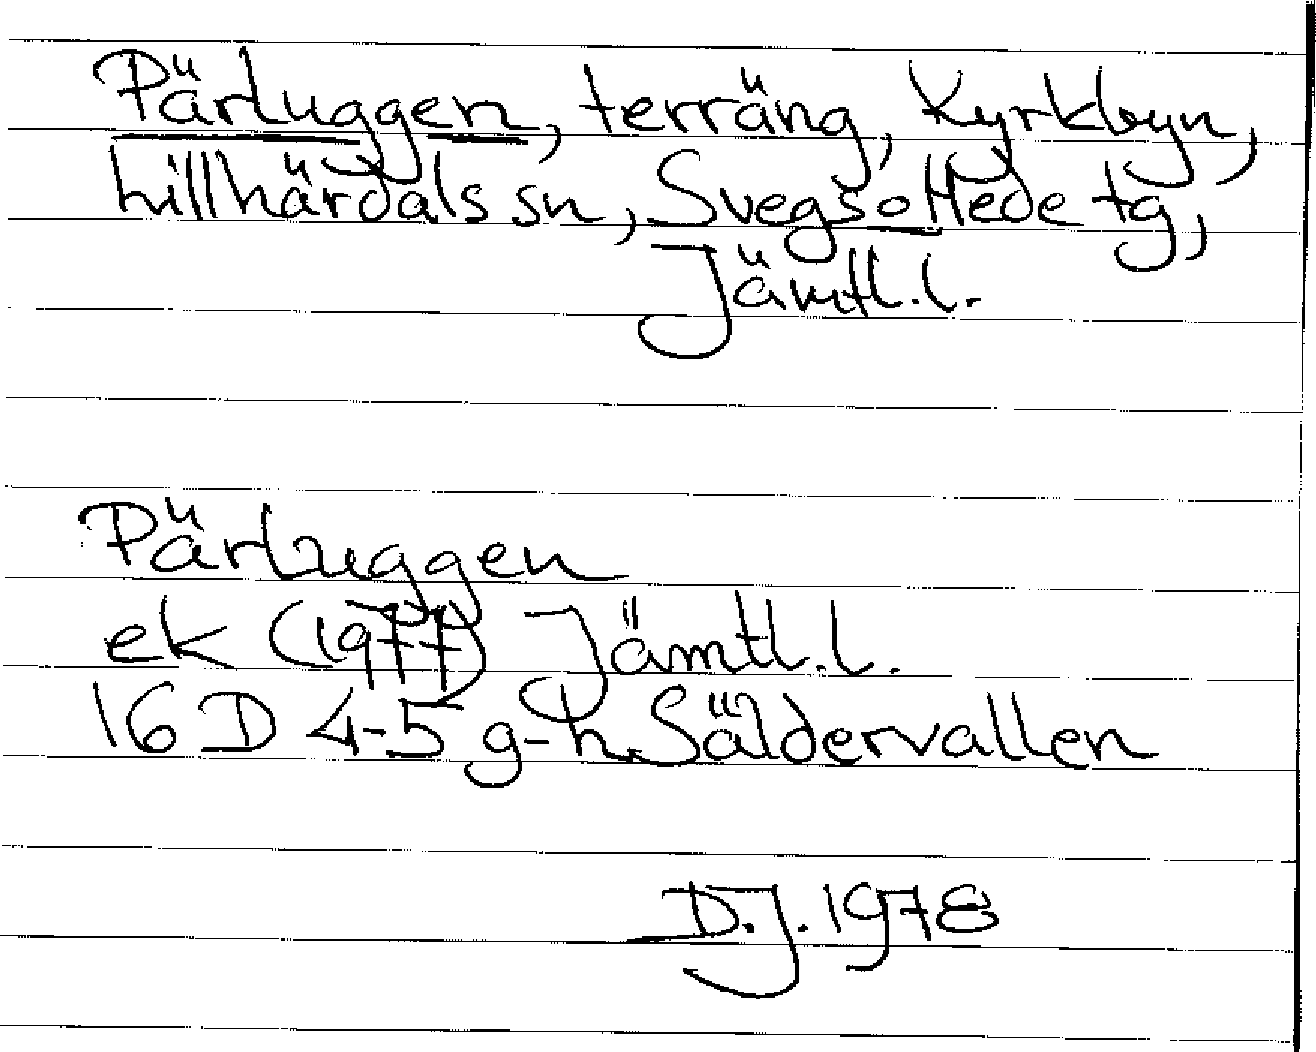 Pärluggen, terräng, Kyrkbyn,
Lillhärdals sn, Svegs o Hede tg,
Jämtl. l.
Pärluggen
ek (1977) Jämtl. l.
16 D 4-5 g-h Säldervallen
D.J. 1978